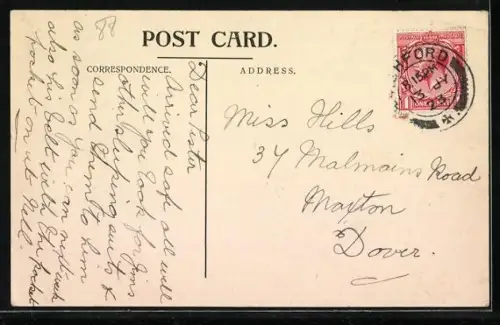 POST CARD.
CORRESPONDENCE.
ADDRESS.
Dear Sister
Arrived safe all well
will you look for Jims
other sleeping suits &
send them to him
as soon as you can next week
also his belt with the pocket
pocket on it Nell.
Miss Hills
37 Malmains Road
Maxton
Dover.
HFORD
ONE